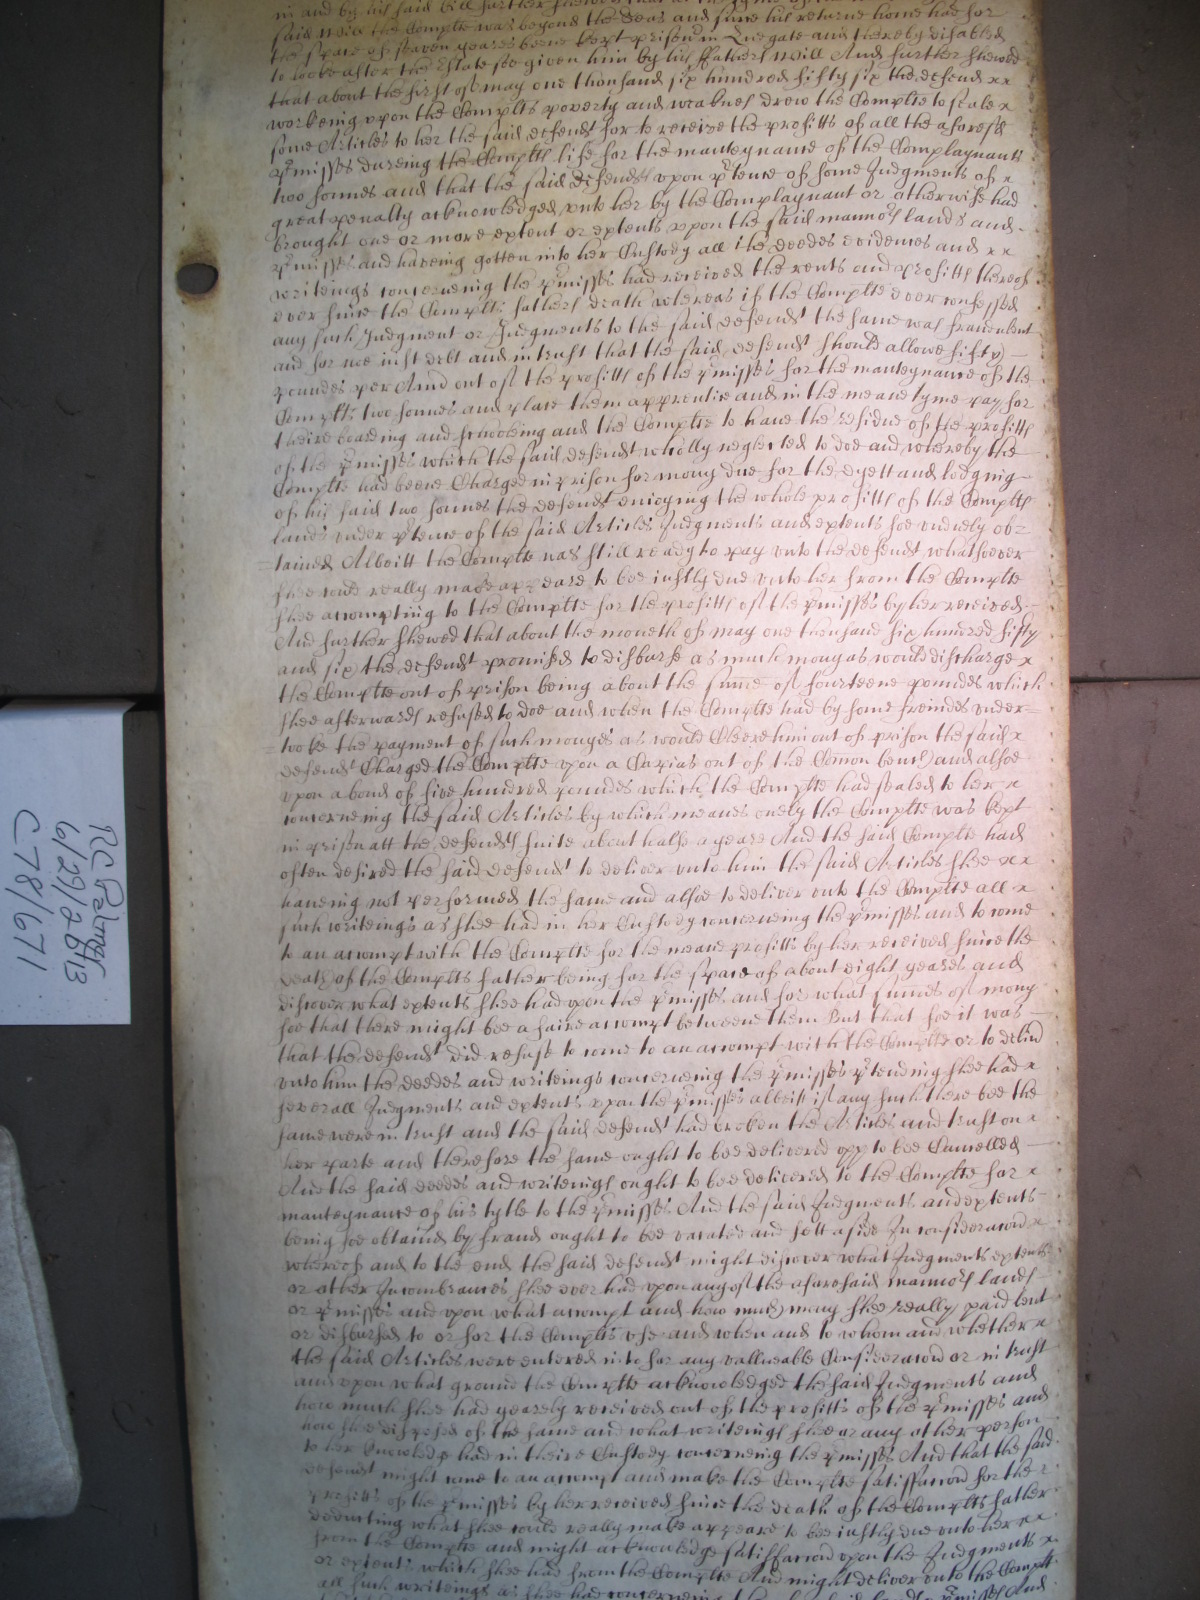 in and by his said bill further shewed that at the tyme of
said Will the Complte was beyond the Seas and since his returne home had for
the space of seaven yeares beene kept prisoner in Ludgate and thereby disabled
to looke after the Estate soe given him by his ffathers Will And further shewed
that about the first of May one thousand six hundred fifty six the defend xx
workeing upon the Complts poverty and weaknes drew the Complte to seale x
some Articles to her the said defendt for to receive the profitts of all the aforesd
pᵉmisses dureing the Complts life for the manteynance of the Complaynants
two sonnes and that the said Defendt upon pᵉtence of some Judgments of x
great penalty acknowledged unto her by the Complaynant or otherwise had
brought one or more extent or extents upon the said mannors lands and -
pᵉmisses and haveing gotten into her Custody all the deedes evidences and xx
writeings concerneing the pᵉmisses had received the rents and profitts thereof
ever since the Complts fathers death whereas if the Complte ever confessed
any such Judgment or Judgments to the said defendt the same was fraudulent
and for noe iust debt and in trust that the said defendt should allowe fifty -
poundes per Annu out of the profitts of the pᵉmisses for the manteynance of the
Complts two sonnes and place them apprentice and in the meane tyme pay for
theire boarding and schooleing and the Complte to have the residue of the profitts
of the pᵉmisses which the said defendt wholly neglected to doe and whereby the
Complte had beene Charged in prison for mony due for the dyett and lodging -
of his said two sonnes the defendt enioying the whole profitts of the Complts
lands under pᵉtence of the said Articles Judgments and extents soe unduely ob=
=tained Albeitt the Complte was still ready to pay unto the defendt whatsoever
shee could really make appeare to bee iustly due unto her from the Complte
shee accompting to the Complte for the profitts of the pᵉmisses by her received -
And further shewed that about the moneth of May one thousand six hundred fifty
and six the defendt promised to disburse as much mony as would discharge x
the Complte out of prison being about the sume of fourteene poundes which
shee afterwards refused to doe and when the Complte had by some freindes under=
=tooke the payment of such monyes as would Cleere him out of prison the said x
defendt Charged the Complte upon a Capias out of the Comon bench and alsoe
upon a bond of five hundred poundes which the Complte had sealed to her x
concerneing the said Articles by which meanes onely the Complte was kept
in prison att the defendts suite about halfe a yeare And the said Complte had
often desired the said defendt to deliver unto him the said Articles shee xx
haveing not performed the same and alsoe to deliver unto the Complte all x
such writeings as shee had in her Custody concerneing the pᵉmisses and to come
to an accompt with the Complte for the meane profitts by her received since the
death of the Complts father being for the space of about eight yeares and
discover what extents shee had upon the pᵉmisses and for what sumes of mony
soe that there might bee a faire accompt betweene them But that soe it was -
that the defendt did refuse to come to an accompt with the Complte or to deliver
unto him the deedes and writeings concerneing the pᵉmisses pᵉtending shee had x
severall Judgments and extents upon the pᵉmisses albeit if any such there bee the
same were in trust and the said defendt had broken the Articles and trust on x
her parte and therefore the same ought to bee delivered upp to bee Cancelled -
And the said deedes and writeings ought to bee delivered to the Complte for x
manteynance of his tytle to the pᵉmisses And the said Judgments and extents -
being soe obtained by fraud ought to bee vacated and sett aside In consideracion x
whereof and to the end the said defendt might discover what Judgments extents
or other Incombrances shee ever had upon any of the aforesaid mannors lands -
or pᵉmisses and upon what accompt and how much mony shee really paid lent
or disbursed to or for the Complts use and when and to whom and whether x
the said Articles were entered into for any valluable Consideracion or in trust
and upon what ground the Complte acknowledged the said Judgments and
how much shee had yearely received out of the profitts of the pᵉmisses and
how shee disposed of the same and what writeings shee or any other person
to her knowledge had in theire Custody concerneing the pᵉmisses And that the said
defendt might come to an accompt and make the Complte satisfaccion for the
profitts of the pᵉmisses by her received since the death of the Complts father
deducting what shee could really make appeare to bee iustly due unto her xx
from the Complte and might acknowledge satisfaccion upon the Judgments x
or extents which shee had from the Complte And might deliver unto the Complt
all such writeings as shee had concerneing the said pᵉmisses And
RC Palmer
6/29/2013
C78/671